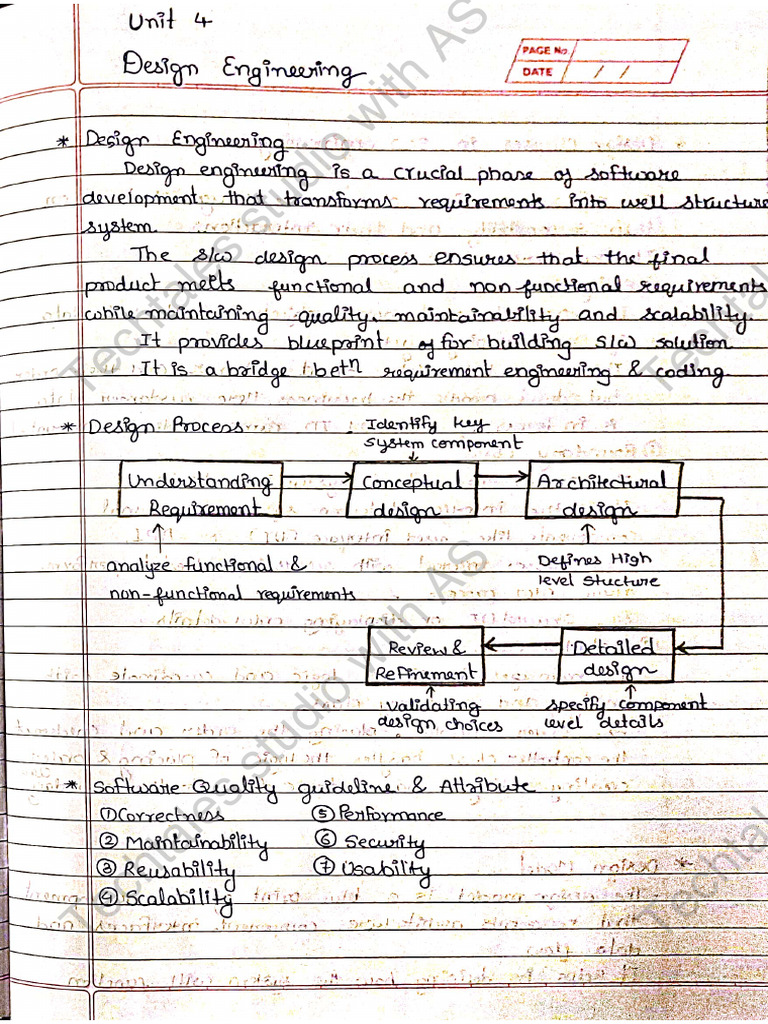 Unit 4
Design Engineering
PAGE No.
DATE / /
* Design Engineering
Design engineering is a crucial phase of software
development that transforms requirements into well structure
system.
The S/W design process ensures that the final
product meets functional and non functional requirements
while maintaining quality, maintainability and scalability.
It provides blueprint of for building S/W solution
It is a bridge betⁿ requirement engineering & coding.
* Design Process
Identify key
system component
Understanding
Requirement
Conceptual
design
Architectural
design
analyze functional &
non-functional requirements
Defines High
level Stucture
Review &
Refinement
Detailed
design
validating
design choices
specify component
level details
* Software Quality guideline & Attribute
① Correctness ⑤ Performance
② Maintainability ⑥ Security
③ Reusability ⑦ Usability
④ Scalability
Techtales studio with AS
Techtales studio with AS
Techtal
Techtal